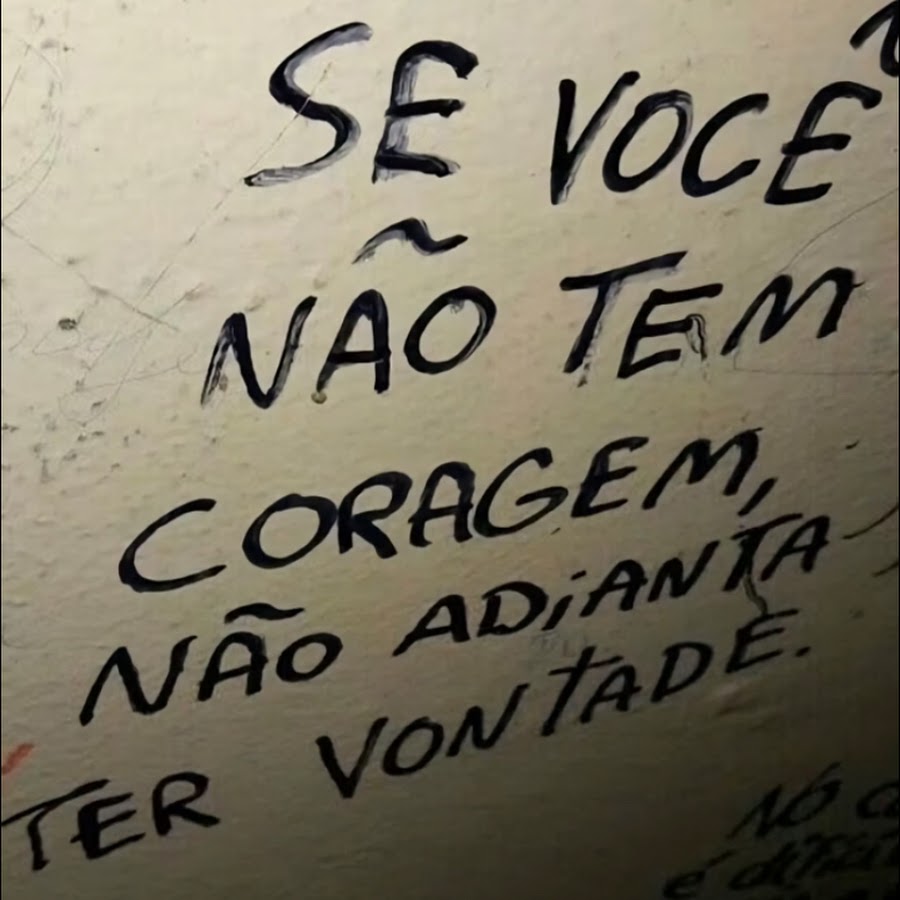 SE VOCÊ
NÃO TEM
CORAGEM,
NÃO ADiANTA
TER VONTADE.
NÓ
é